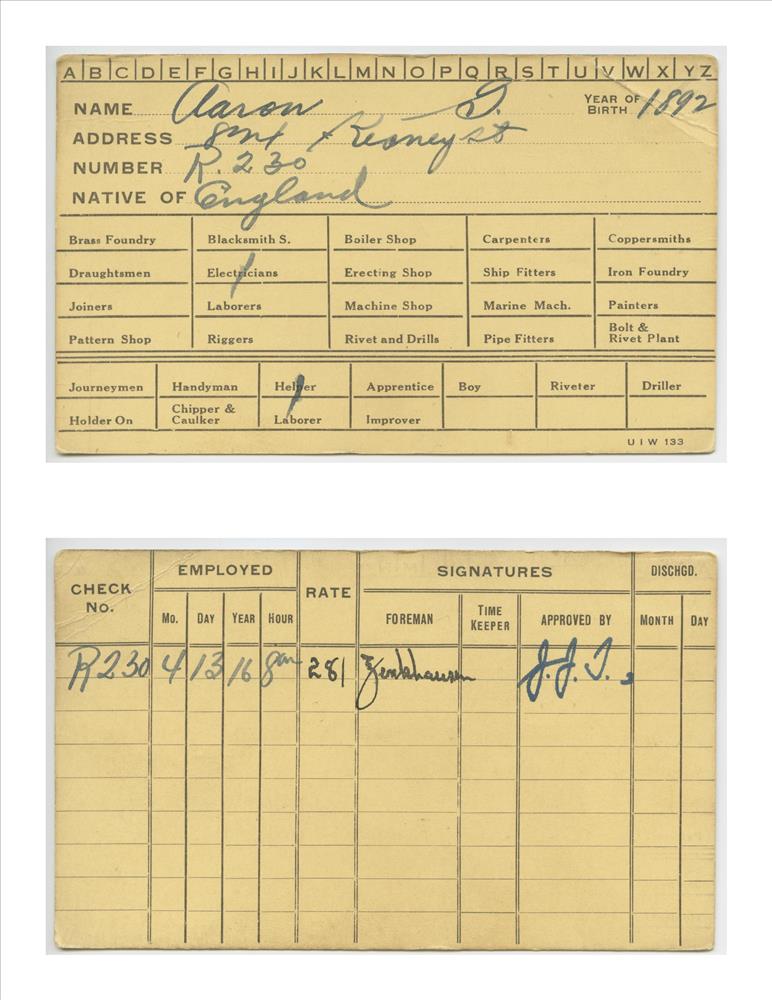 A B C D E F G H I J K L M N O P Q R S T U V W X Y Z
NAME Aaron S. YEAR OF BIRTH 1892
ADDRESS Kearney st
NUMBER R. 230
NATIVE OF England
Brass Foundry Blacksmith S. Boiler Shop Carpenters Coppersmiths
Draughtsmen Electricians Erecting Shop Ship Fitters Iron Foundry
Joiners Laborers Machine Shop Marine Mach. Painters
Pattern Shop Riggers Rivet and Drills Pipe Fitters Bolt & Rivet Plant
Journeymen Handyman Helper Apprentice Boy Riveter Driller
Holder On Chipper & Caulker Laborer Improver
U I W 133
CHECK No. EMPLOYED RATE SIGNATURES DISCHGD.
Mo. DAY YEAR HOUR FOREMAN TIME KEEPER APPROVED BY MONTH DAY
R230 4 13 16 8am 281 Zenkhausen J.J.T.